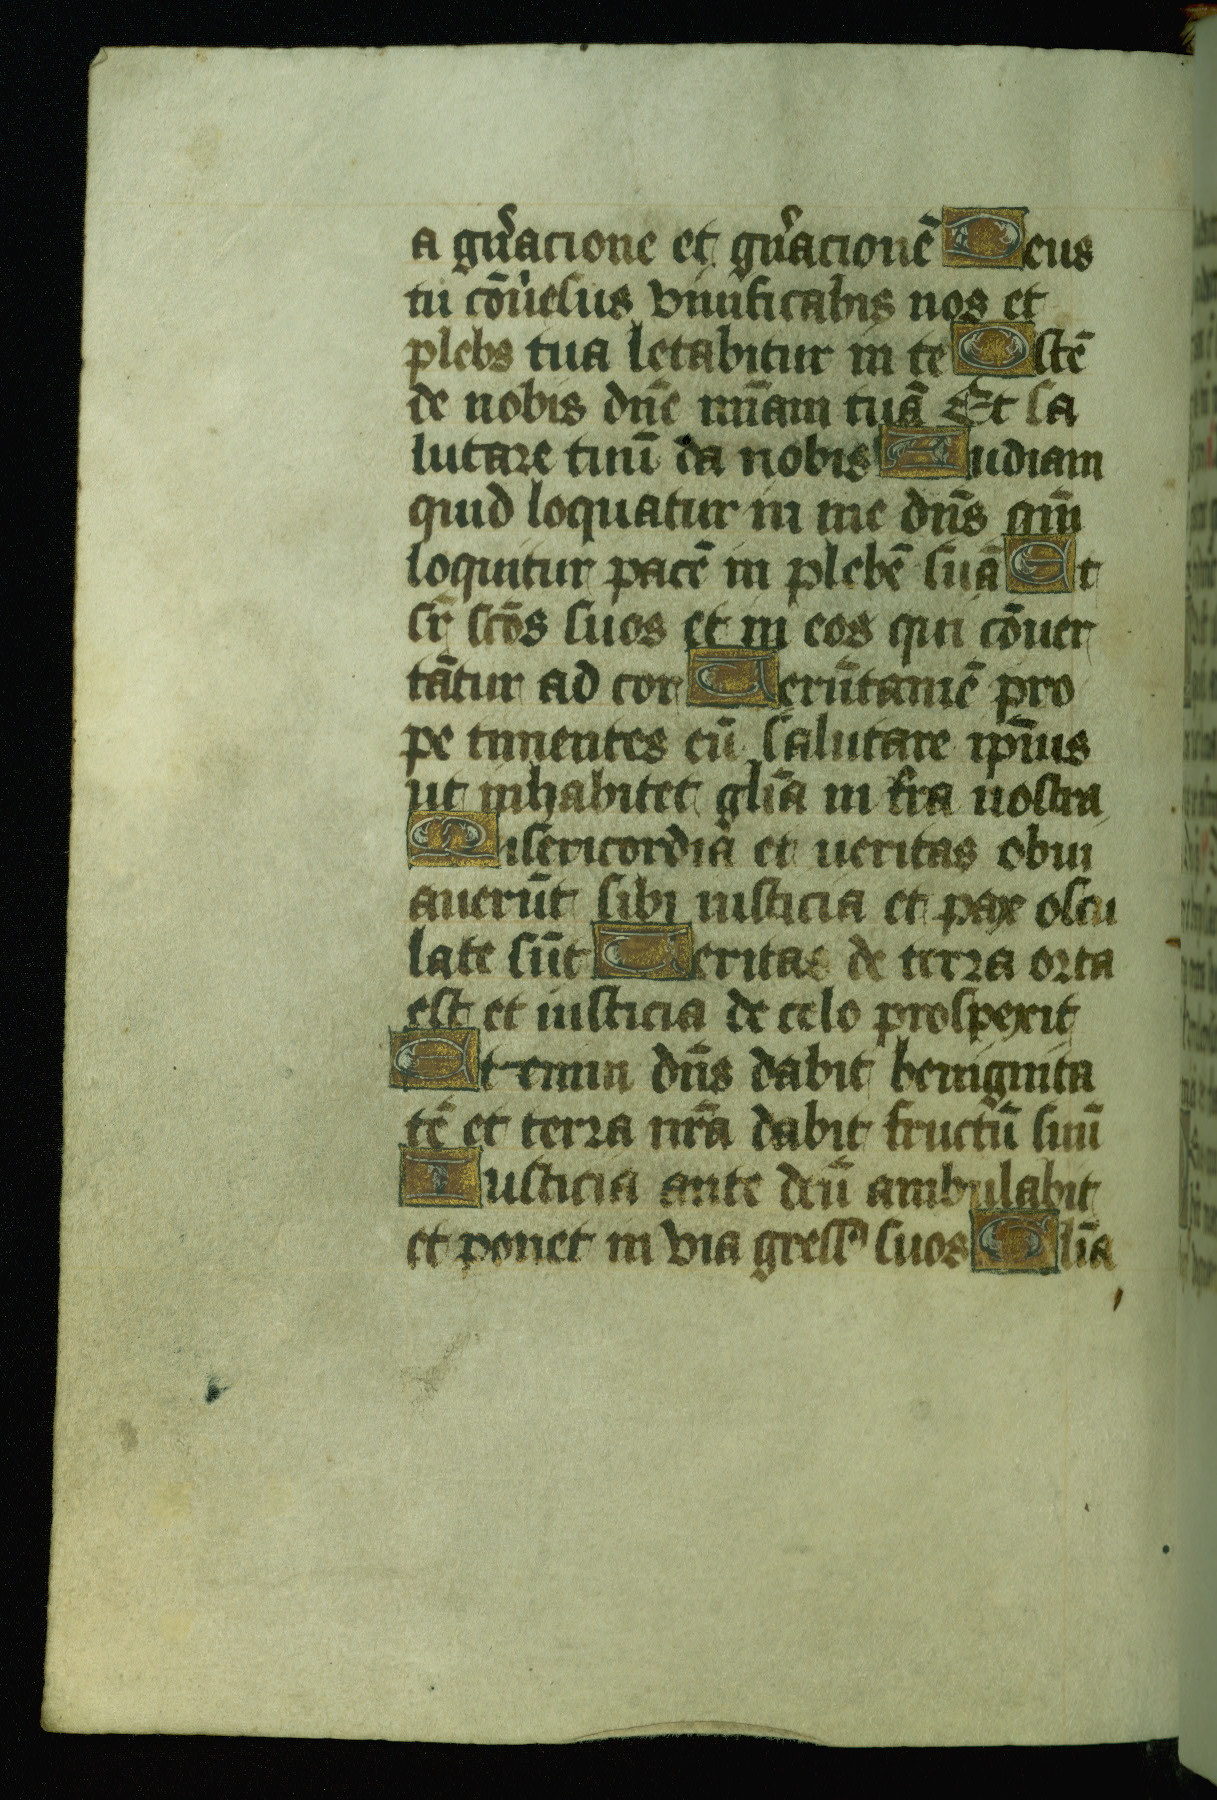 a gn̄acione et gn̄acionē Deus
tu cōūesus viuificabis nos et
plebs tua letabitur in te Ostē
de nobis dn̄e mīam tuā Et sa
lutare tuū da nobis Audiam
quid loquatur in me dn̄s qm̄
loquitur pacē in plebē suā Et
sr̄ scōs suos et in eos qui cōuer
tātur ad cor Uerūtamē pro
pe timentes eū salutare ip̄ius
ut inhabitet glīa in tr̄a nostra
Misericordia et ueritas obui
auerūt sibi iusticia et pax oscu
late sūt Ueritas de terra orta
est et iusticia de celo prospexit
Et enim dn̄s dabit benignita
tē et terra nr̄a dabit fructū suū
Iusticia ante deū ambulabit
et ponet in via gress9 suos Glīa